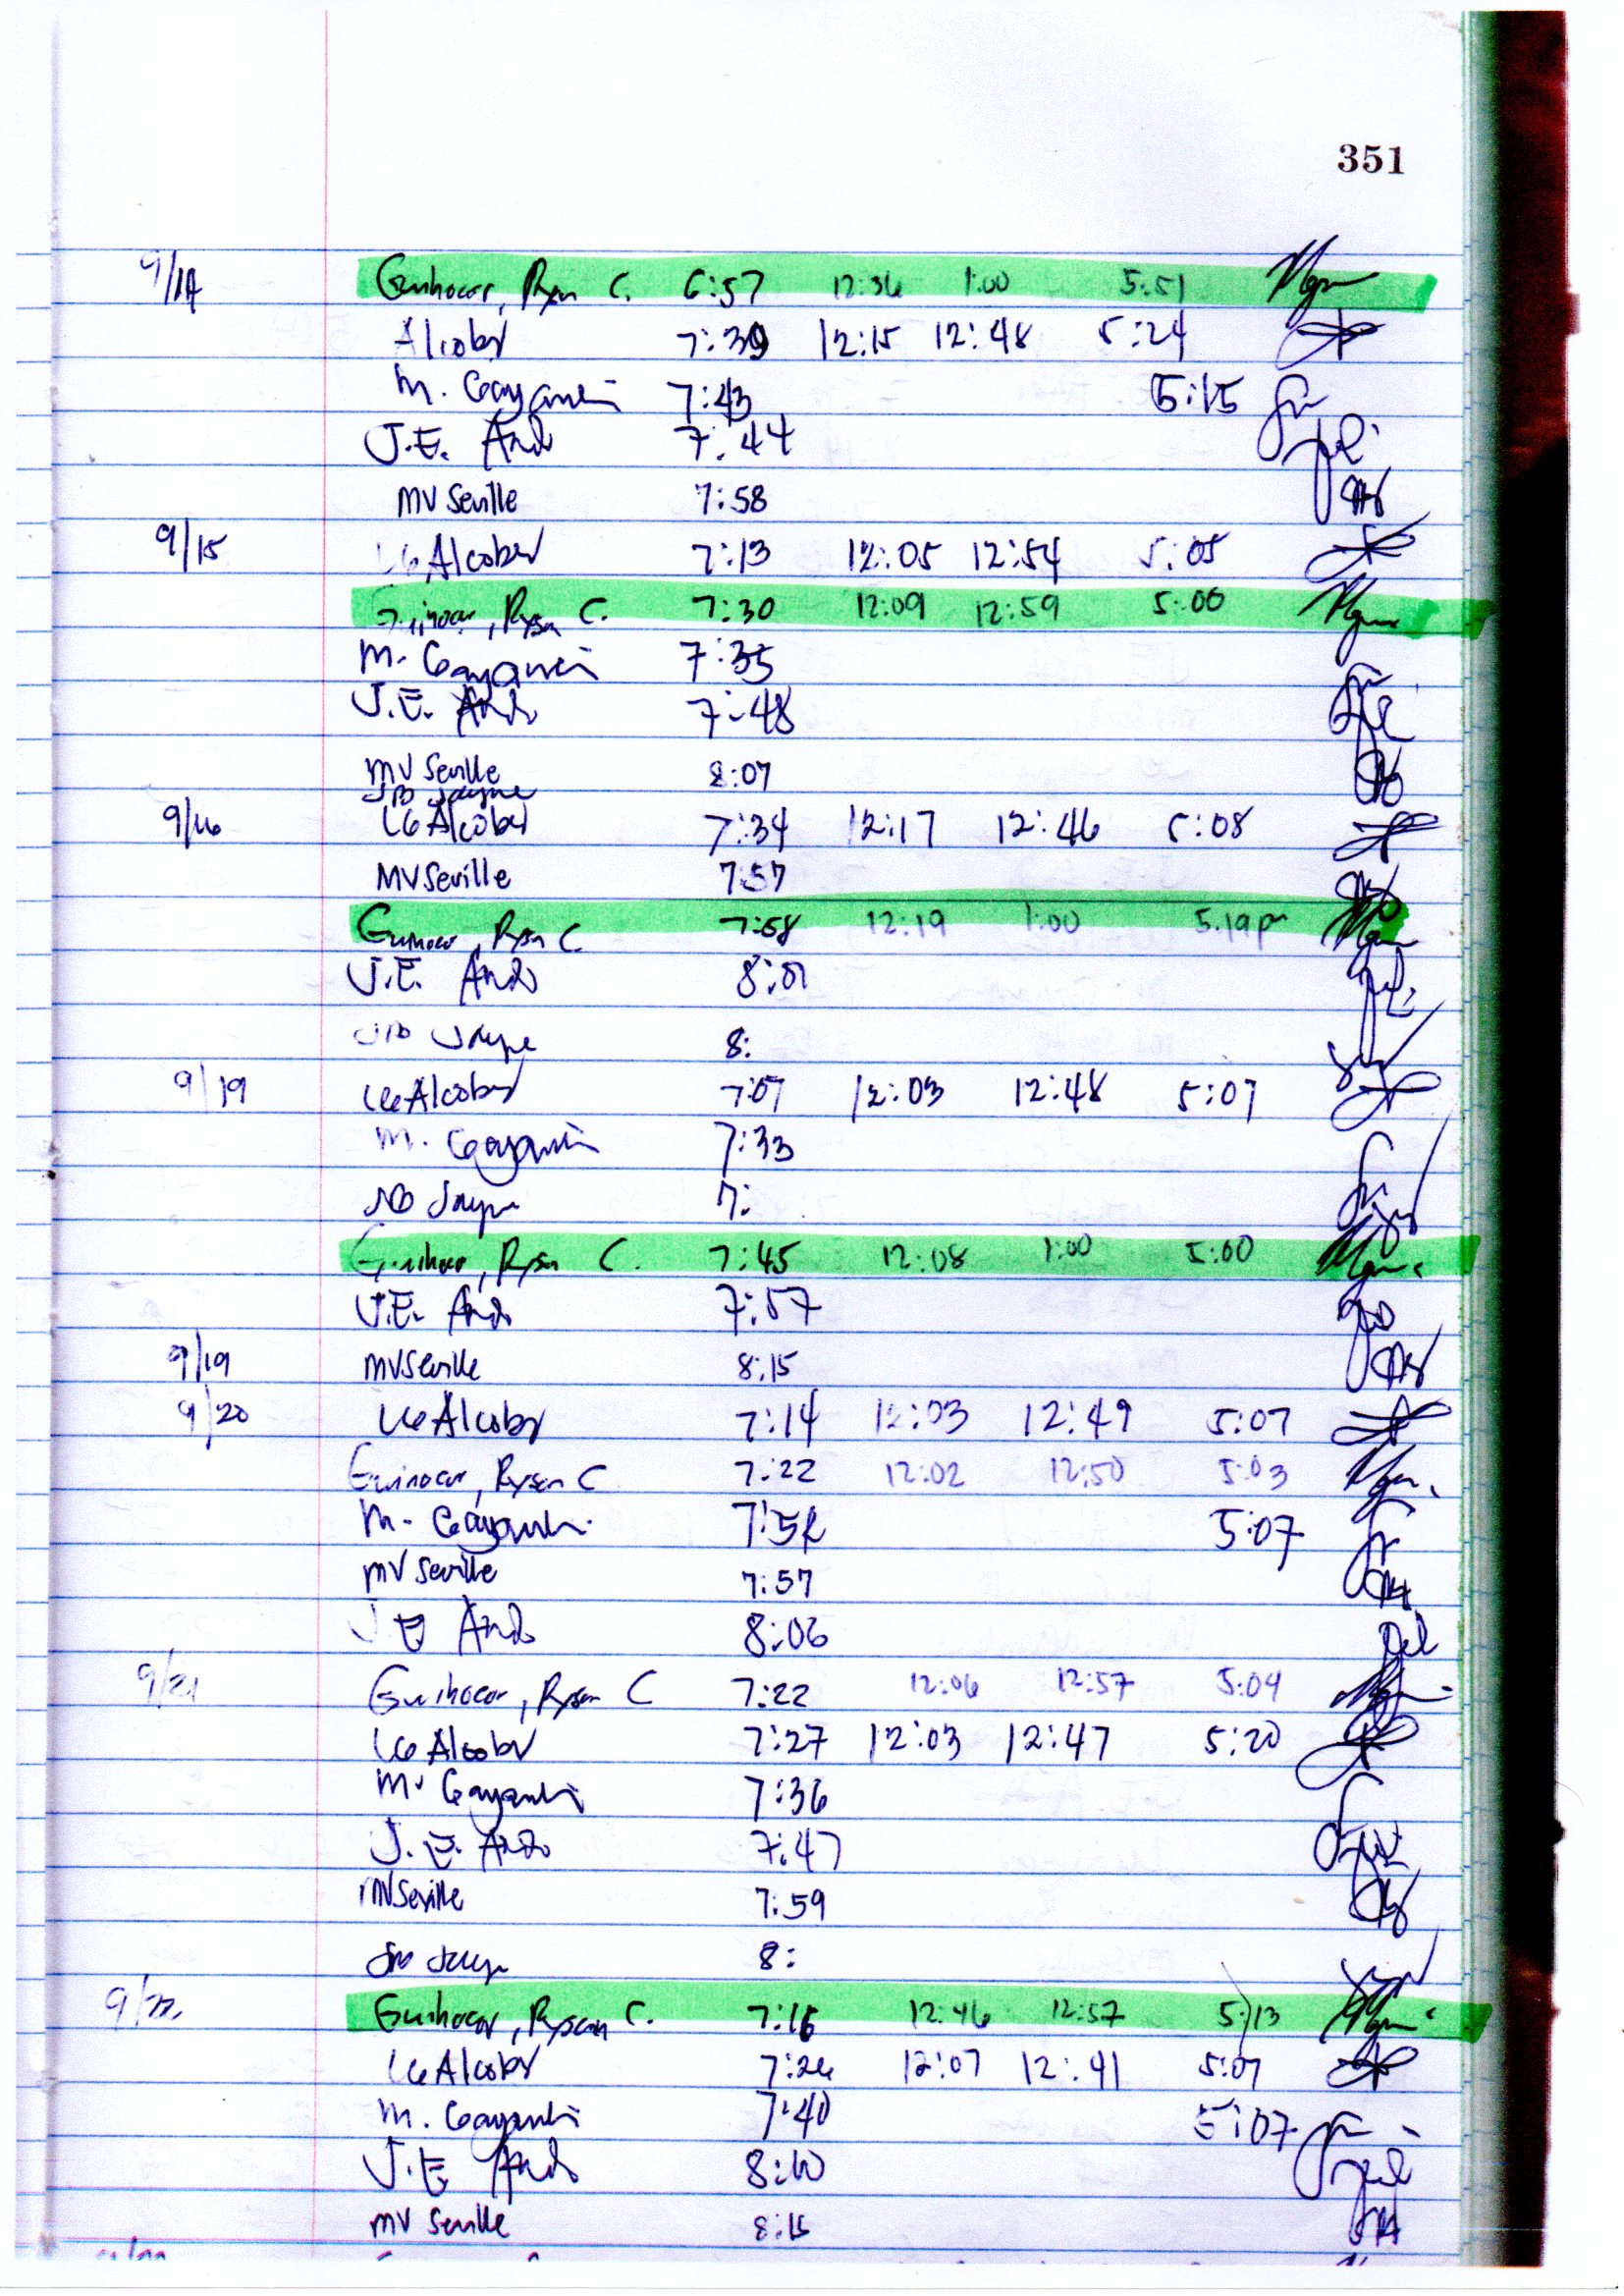 351
9/14 Guinocor, Ryan C. 6:57 12:36 1:00 5:51
Alcober 7:39 12:15 12:48 5:24
M. 7:43 5:15
J.E. Ando 7:44
MV Seville 7:58
9/15 LG Alcober 7:13 12:05 12:54 5:05
Guinocor, Ryan C. 7:30 12:09 12:59 5:00
M. 7:35
J.E. Ando 7:48
MV Seville 8:07
JB Jayme
9/16 LG Alcober 7:34 12:17 12:46 5:08
MV Seville 7:57
Guinocor, Ryan C 7:58 12:19 1:00 5:19pm
J.E. Ando 8:01
JB Jayme 8:
9/19 LG Alcober 7:07 12:03 12:48 5:07
M. 7:33
JB Jayme 7:
Guinocor, Ryan C. 7:45 12:08 1:00 5:00
J.E. Ando 7:57
9/19 MV Seville 8:15
9/20 LG Alcober 7:14 12:03 12:49 5:07
Guinocor, Ryan C 7:22 12:02 12:50 5:03
M. 5:07
MV Seville 7:57
J E Ando 8:06
9/21 Guinocor, Ryan C 7:22 12:06 12:57 5:04
LG Alcober 7:27 12:03 12:47 5:20
M. 7:36
J.E. Ando 7:47
MV Seville 7:59
JB Jayme 8:
9/22 Guinocor, Ryan C. 7:16 12:46 12:57 5:13
LG Alcober 7:26 12:07 12:41 5:07
M. 7:40 5:07
J.E. Ando 8:10
MV Seville 8:15